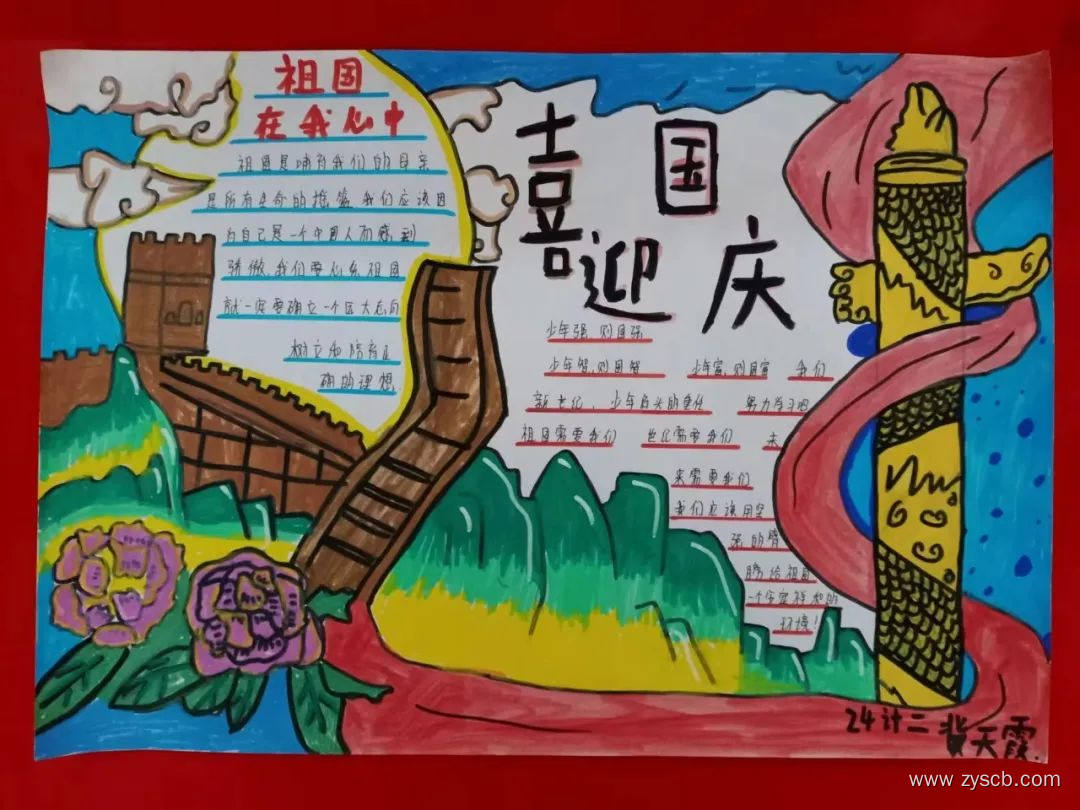 祖国
在我心中
祖国是哺育我们的母亲
是所有生命的摇篮我们应该因
为自己是一个中国人而感到
骄傲.我们要心系祖国
就一定要确立一个远大志向
树立和培育正
确的理想.
喜迎国庆
少年强.则国强
少年智.则国智 少年富.则国富 我们
新世纪、少年肩头的重任 努力学习吧
祖国需要我们 世纪需要我们 未
来需要我们
我们应该用坚
强的臂
膀给祖国
一个安定祥和的
环境!
24计二 天霞.
www.zyscb.com